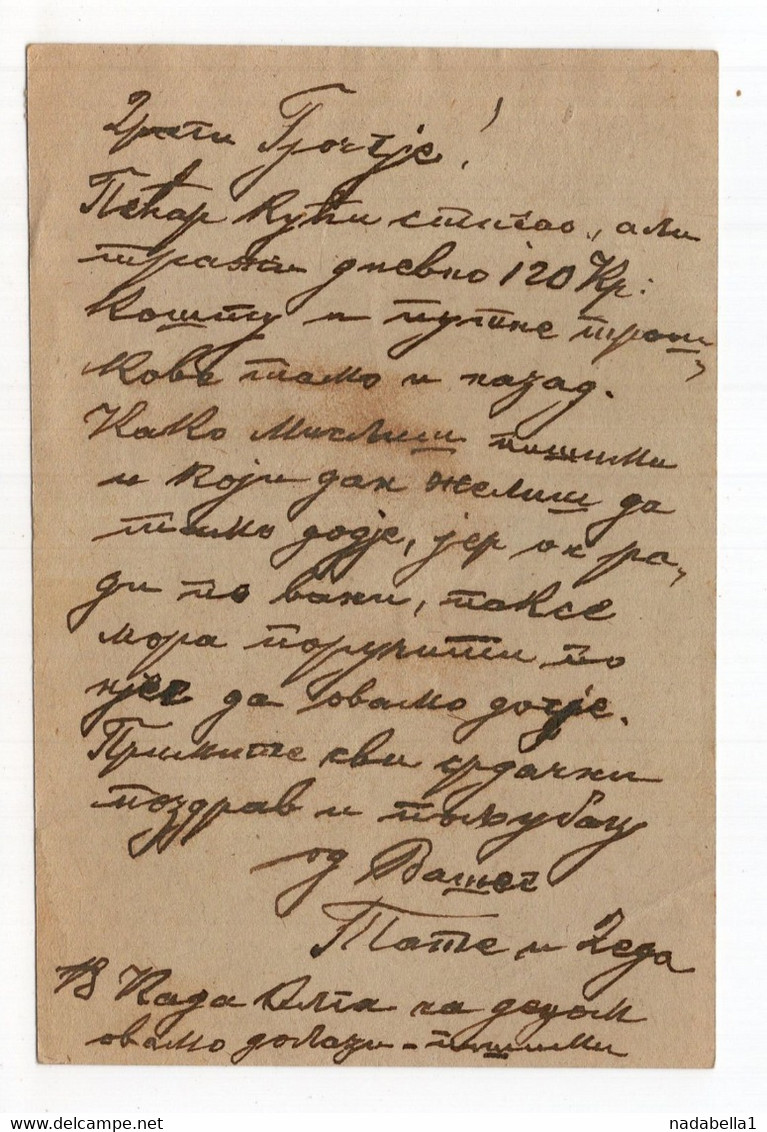 Драги Ђорђе!
Пећар кући стигао, али
тражи дневно 120 Кр:
кошту и путне трош„
кове тамо и назад.
Како мислиш пишими
и који дан желиш да
тамо додје, јер он ра„
ди по вани, такосе
мора поручити по
њег да овамо дође.
Примите сви срдачни
поздрав и пољубац
од Вашег
Тате и Деда
NB Када Олга са децом
овамо долази – пишими
nadabella1